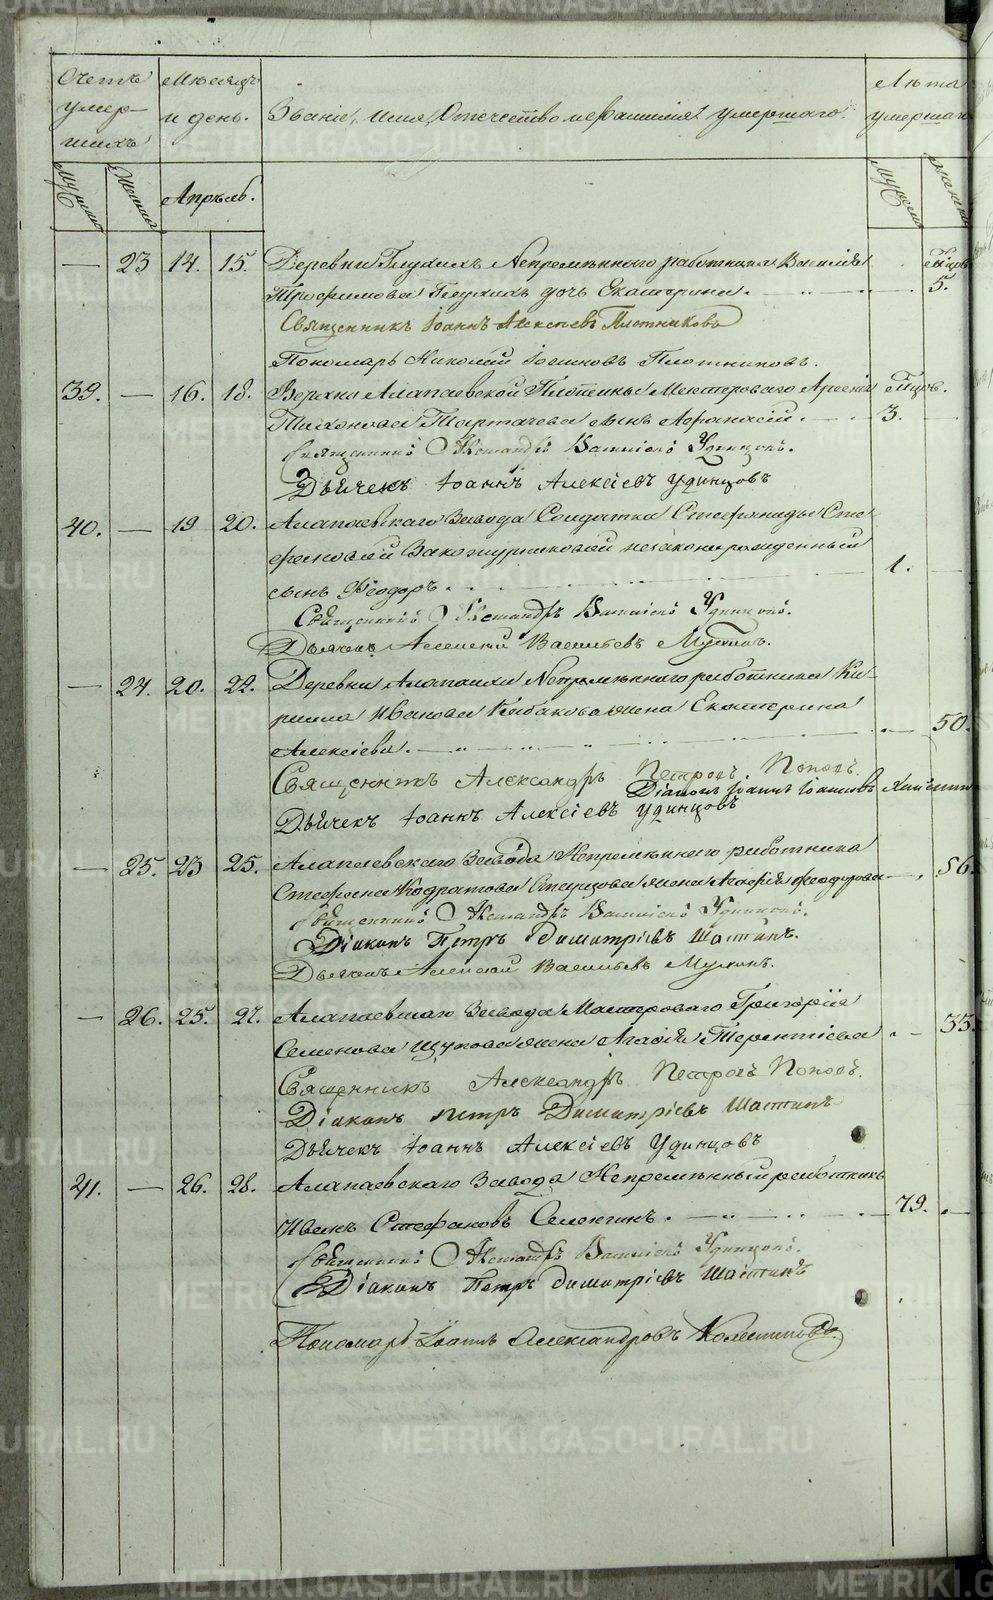 Счетъ умер- шихъ
Мѣсяцъ и день.
Званіе, имя, Отечество и фамилія умершаго.
Лѣта умершаго
Мужеска
Женска
Апрѣль.
Мужеска
Женска
— 23 14. 15. Деревни Глухихъ Непремѣннаго работника Василія
Трофимова Глухихъ дочь Екатерина. 5.
Священникъ Іоаннъ Алексѣевъ Плотниковъ
Пономарь Николай Іоанновъ Плотниковъ.
39. — 16. 18. Верхно Алапаевской Плотины Мастероваго Арсенія
Тихонова Толмачева сынъ Афанасій. 3.
Священникъ Александръ Василіевъ Удинцовъ.
Дьячекъ Іоаннъ Алексіевъ Удинцовъ
40. — 19 20. Алапаевскаго Завода Солдатки Стефаниды Сте-
фановой незаконнорожденный 1.
сынъ Ѳеодоръ.
Священникъ Александръ Василіевъ Удинцовъ.
Дьячекъ Алексѣй Васильевъ Мухинъ.
— 24. 20. 22. Деревни Алапаихи Непремѣннаго работника Ки-
рилла Иванова Кабакова жена Екатерина 50.
Алексіева.
Священникъ Александръ Петровъ Поповъ.
Діаконъ Іоаннъ Іоанновъ
Дьячекъ Іоаннъ Алексіевъ Удинцовъ
— 25. 23 25. Алапаевскаго Завода Непремѣннаго работника
Стефана Кодратова Старцова жена Агафія Ѳеодорова 56.
Священникъ Александръ Василіевъ Удинцовъ.
Діаконъ Петръ Димитріевъ Шастинъ.
Дьячекъ Алексѣй Васильевъ Мухинъ.
— 26. 25. 27. Алапаевскаго Завода Мастероваго Григорія
Семенова Щупова жена Агафія Терентіева 33.
Священникъ Александръ Петровъ Поповъ.
Діаконъ Петръ Димитріевъ Шастинъ
Дьячекъ Іоаннъ Алексіевъ Удинцовъ
41. — 26. 28. Алапаевскаго Завода Непремѣнный работникъ
Иванъ Стефановъ Селонгинъ. 79.
Священникъ Александръ Василіевъ Удинцовъ.
Діаконъ Петръ Димитріевъ Шастинъ
Пономарь Іоаннъ Александровъ Колесниковъ
METRIKI.GASO-URAL.RU